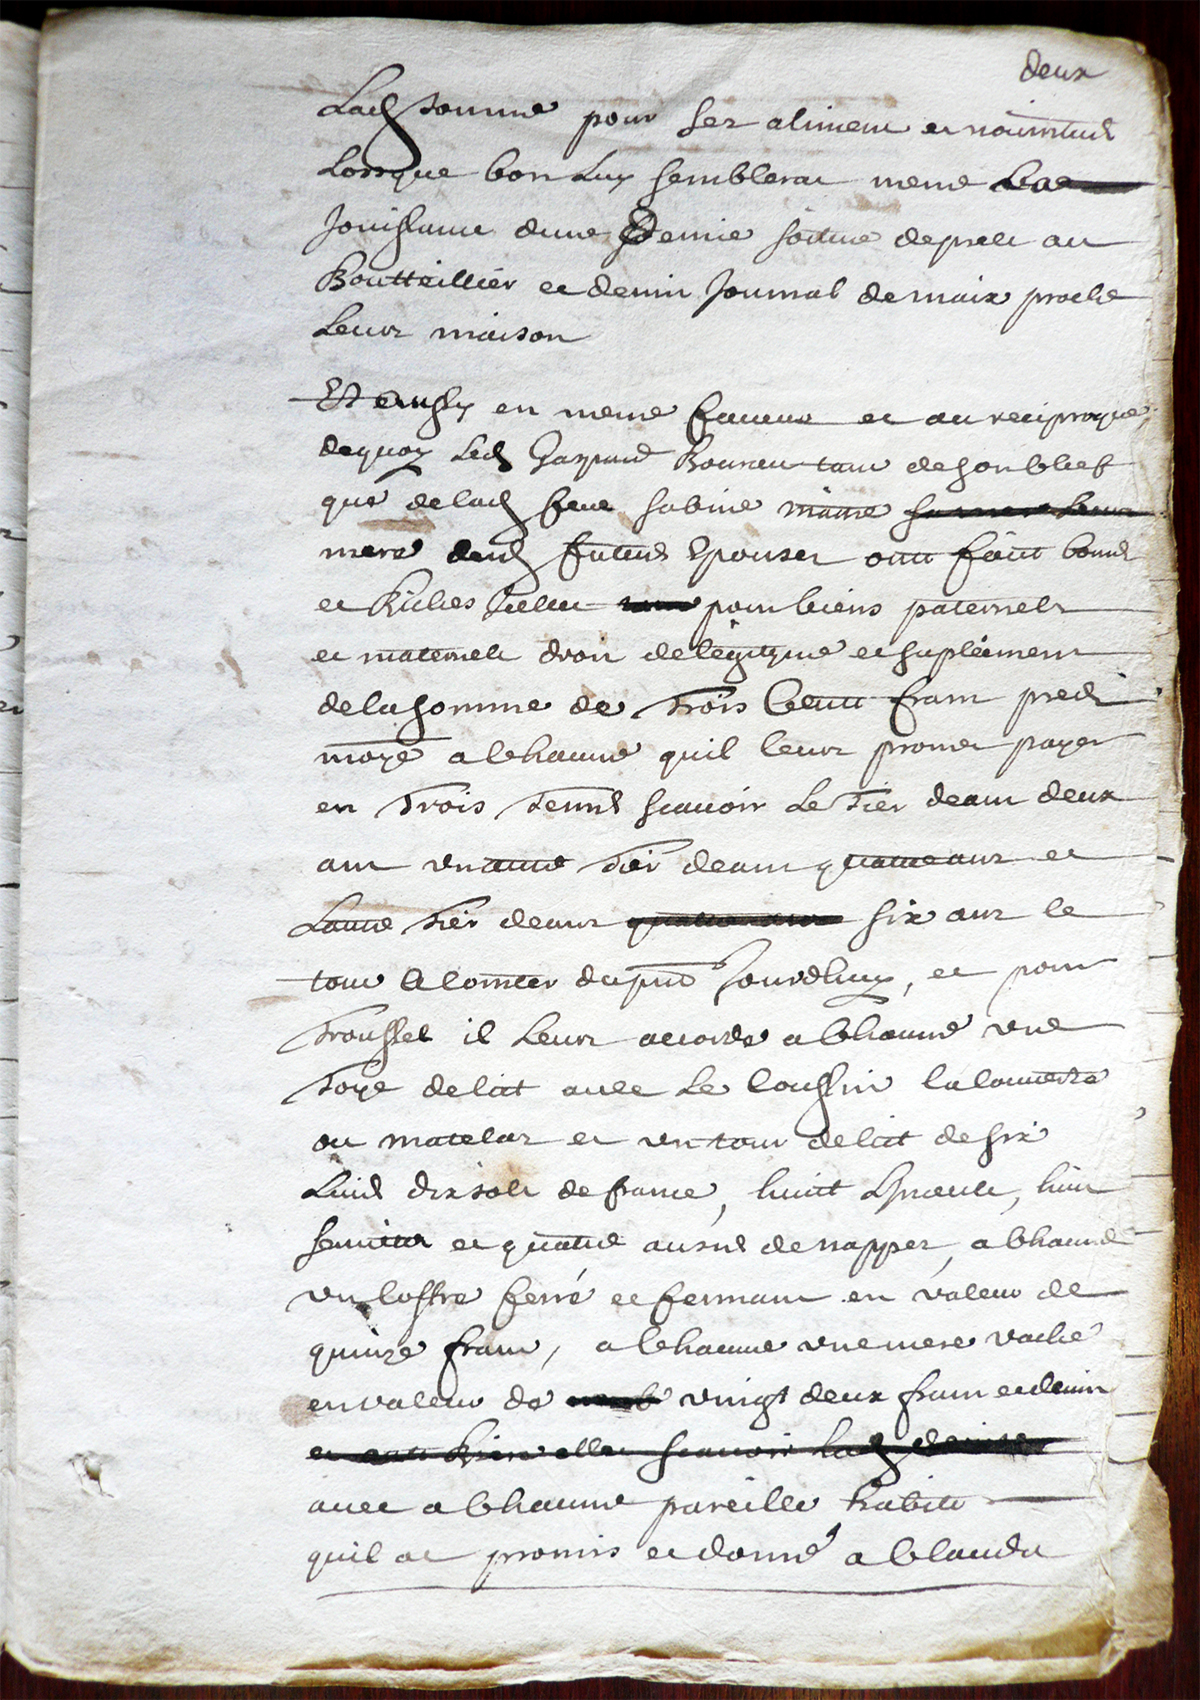 deux
Lad somme pour ses aliment et
Lorsque bon Luy semblerat meme
Jouissance dune Demie soiture de prelz au
Boutteillier et demir Journal de maix proche
Leur maison
Et aussy en meme faueur et au reciproque
dequoy Led Gaspard tant de son chef
que de lad feue Sabine
mere desd futurs Epouses ont faict bonnes
et Riches pour biens paternelz
et maternelz droit de legityme et suplement
de la somme de Trois Centz franc
monye a chaune quil leur promet payer
en Trois Termes scauoir Le Tier deans deux
ans vn autre Tier deans quatre ans et
Lautre Tier deans six ans le
tout A Comter du pnt Jourdhuy, et pour
Troussel il Leur accorde a Chaune vne
Toye de lict auec Le Coussin la couuerte
ou matelas et vn tour de lict de six
dix solz de france, huict huit
seruiettes et quatre aunes de nappes, a Chaune
vn Coffre ferré et fermant en valeur de
quinze franc, a Chaune vne mere vache
en valeur de vingt deux franc et demir
auec a Chaune pareille habitz
quil at promis et donné a Clauda